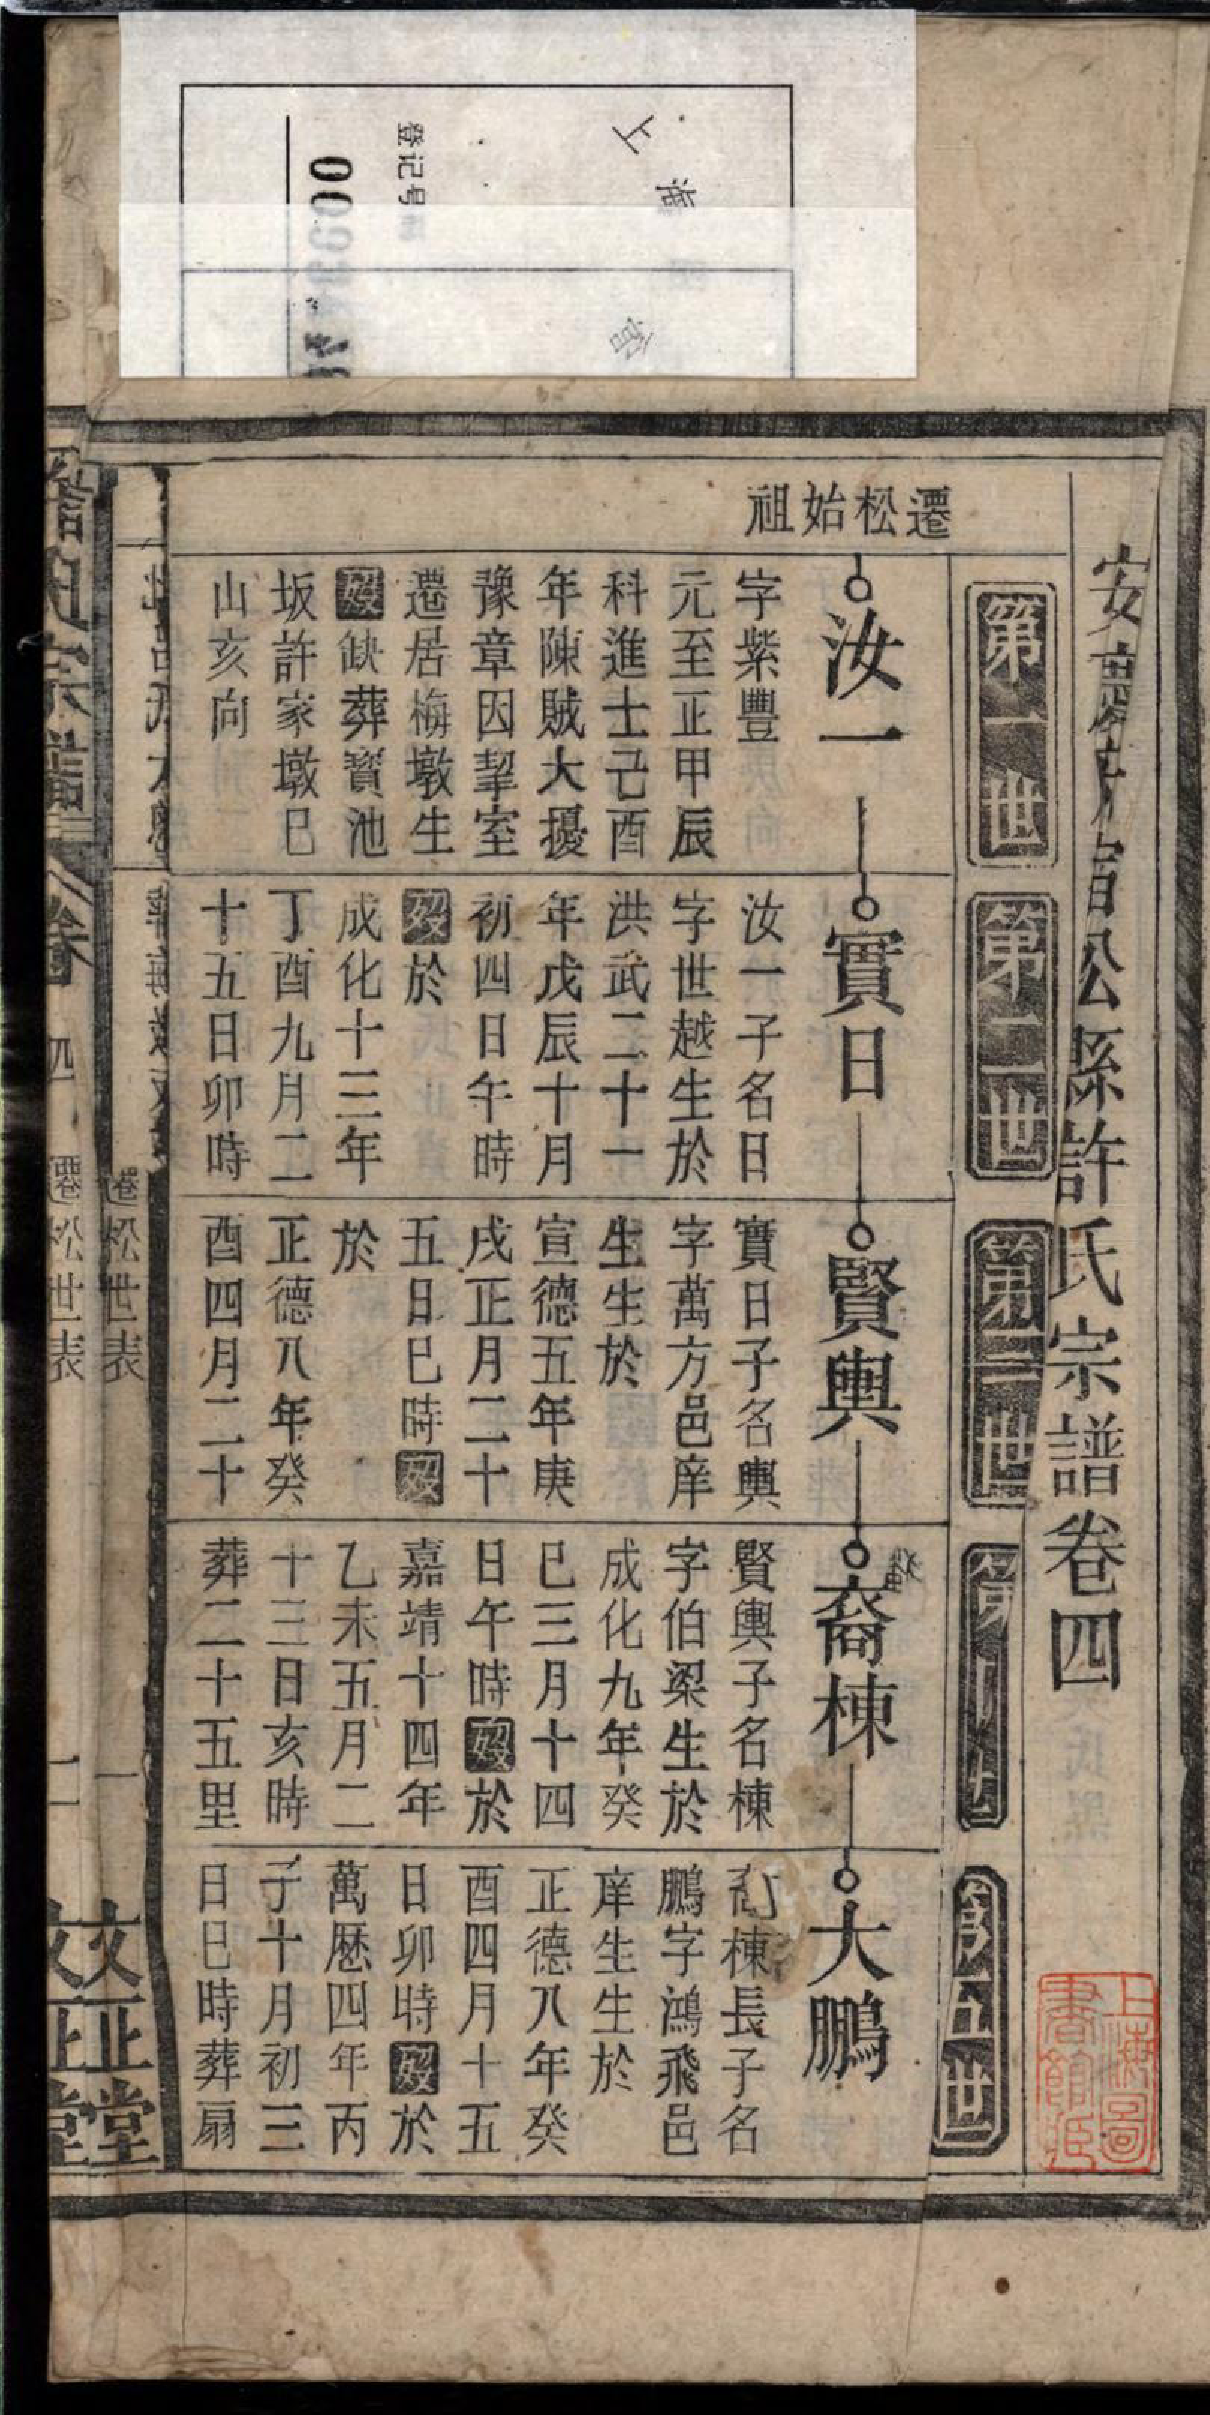 上海
登记号
安慶府宿松縣許氏宗譜卷四
第一世
第二世
第三世
第五世
遷松始祖
汝一
字紫豐
元至正甲辰
科進士己酉
年陳賊大擾
豫章因挈室
遷居梅墩生
歿缺葬寳池
坂許家墩巳
山亥向
實日
汝一子名日
字世越生於
洪武二十一
年戊辰十月
初四日午時
歿於
成化十三年
丁酉九月二
十五日卯時
賢輿
實日子名輿
字萬方邑庠
生生於
宣德五年庚
戌正月二十
五日巳時歿
於
正德八年癸
酉四月二十
裔棟
賢輿子名棟
字伯梁生於
成化九年癸
巳三月十四
日午時歿於
嘉靖十四年
乙未五月二
十三日亥時
葬二十五里
大鵬
裔棟長子名
鵬字鴻飛邑
庠生生於
正德八年癸
酉四月十五
日卯時歿於
萬厯四年丙
子十月初三
日巳時葬扇
許氏宗譜
卷四
遷松世表
遷松世表
文正堂
文正堂
上海圖書館藏